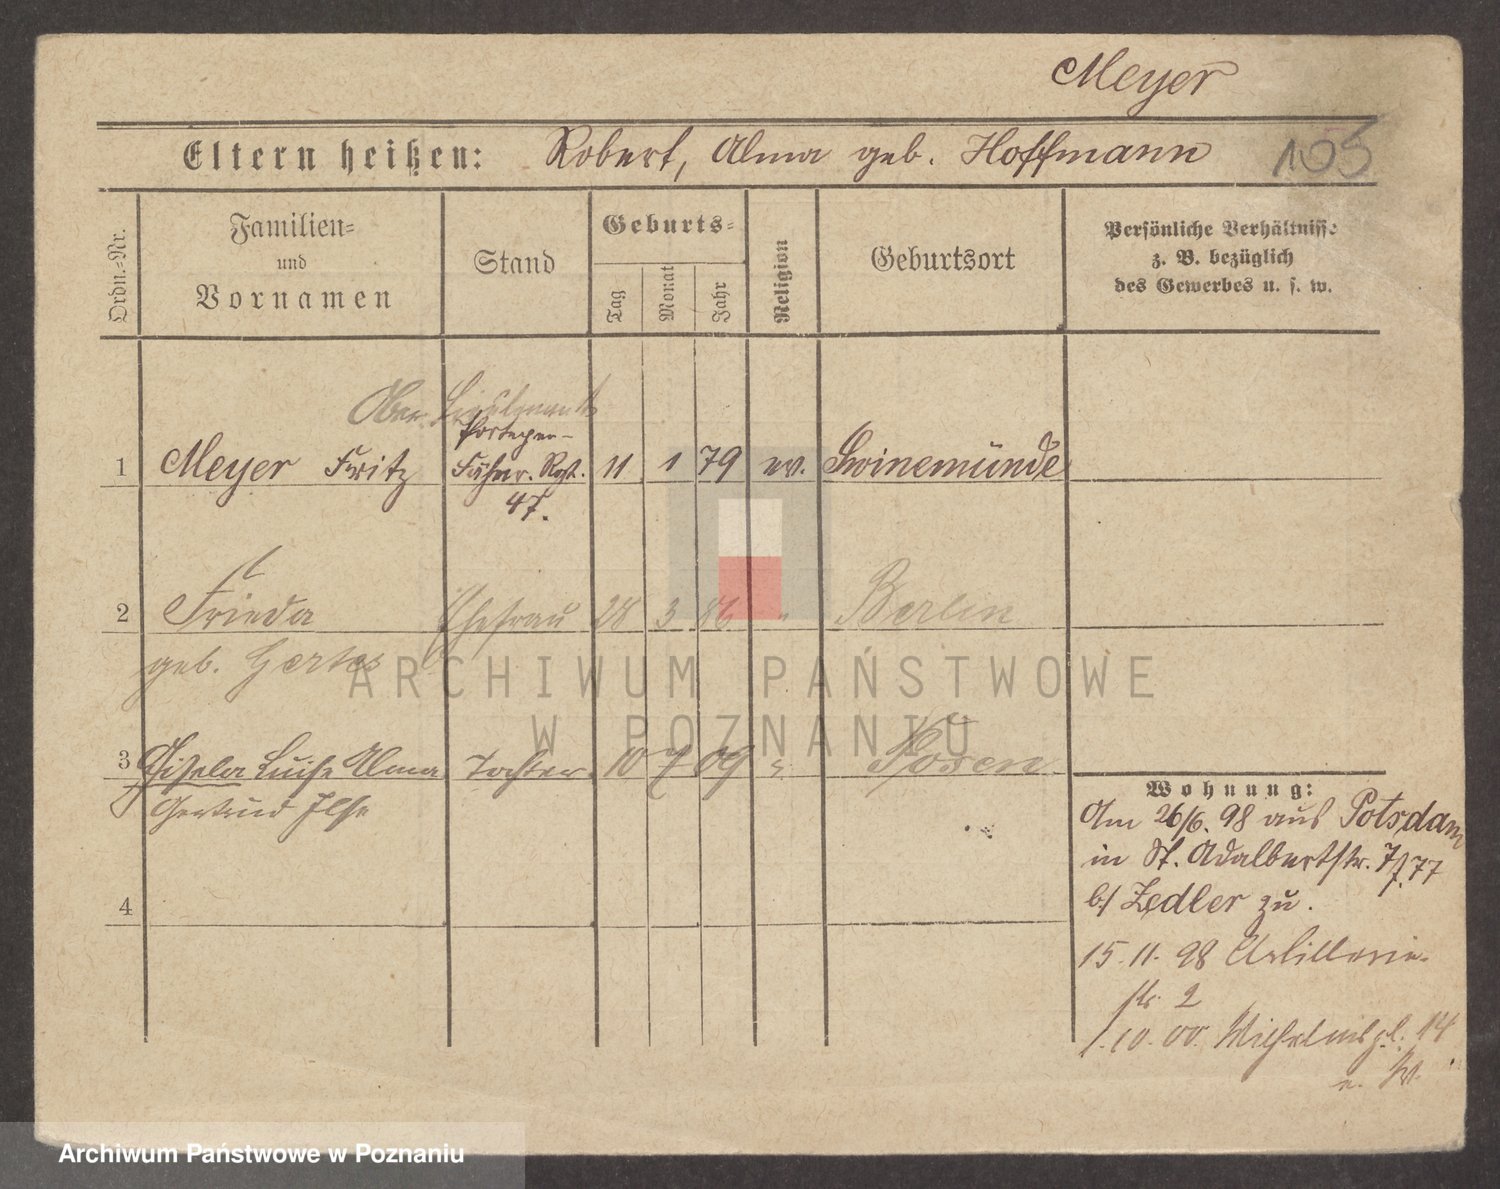 Meyer
Eltern heißen: Robert, Alma geb. Hoffmann
105
Ordn.-Nr.
Familien-
und
Vornamen
Stand
Geburts-
Tag
Monat
Jahr
Religion
Geburtsort
Persönliche Verhältnisse
z. B. bezüglich
des Gewerbes u. s. w.
Ober Lieutenant
Portepee-
1 Meyer Fritz Fähnr. Regt. 11 1 79 ev. Swinemünde
47.
2 Frieda Ehefrau 28 3 86 " Berlin
geb. Gertes
3 Gisela Luise Alma Tochter 10 7 09 " Posen
Gertrud Ilse
4
Wohnung:
Am 26/6. 98 aus Potsdam
in St. Adalbertstr.
b/ Zedler zu.
15. 11. 98 Artillerie-
str. 2
1. 10. 00 Wilhelmspl. 14
ARCHIWUM PAŃSTWOWE
W POZNANIU
Archiwum Państwowe w Poznaniu